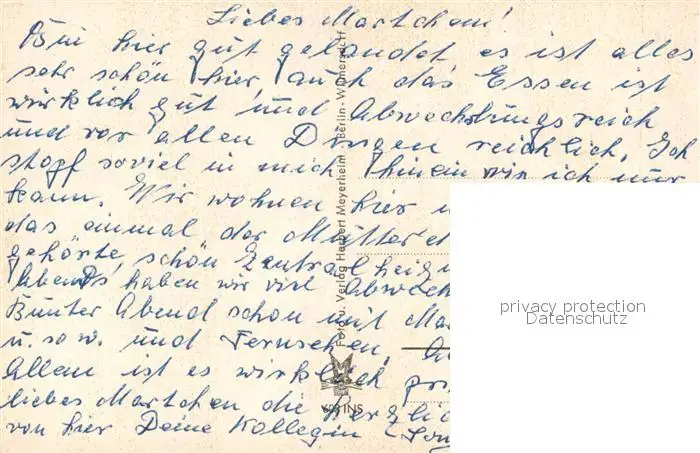 Liebes Martchen!
Bin hier gut gelandet es ist alles
sehr schön hier, auch das Essen ist
wirklich gut und Abwechslungsreich
und vor allen Dingen reichlich. Ich
stopf soviel in mich hinein wie ich nur
kann. Wir wohnen hier
das einmal der Mutter
gehörte, schön Zentralheizu
Abends haben wir viel Abwech
Bunter Abend schon mit
u.s.w. und Fernsehen.
Allem ist es wirklich
liebes Martchen die herzlich
von hier Deine Kollegin
Foto u. Verlag Herbert Meyerheim Berlin-Wilmersdorf
INS
privacy protection
Datenschutz